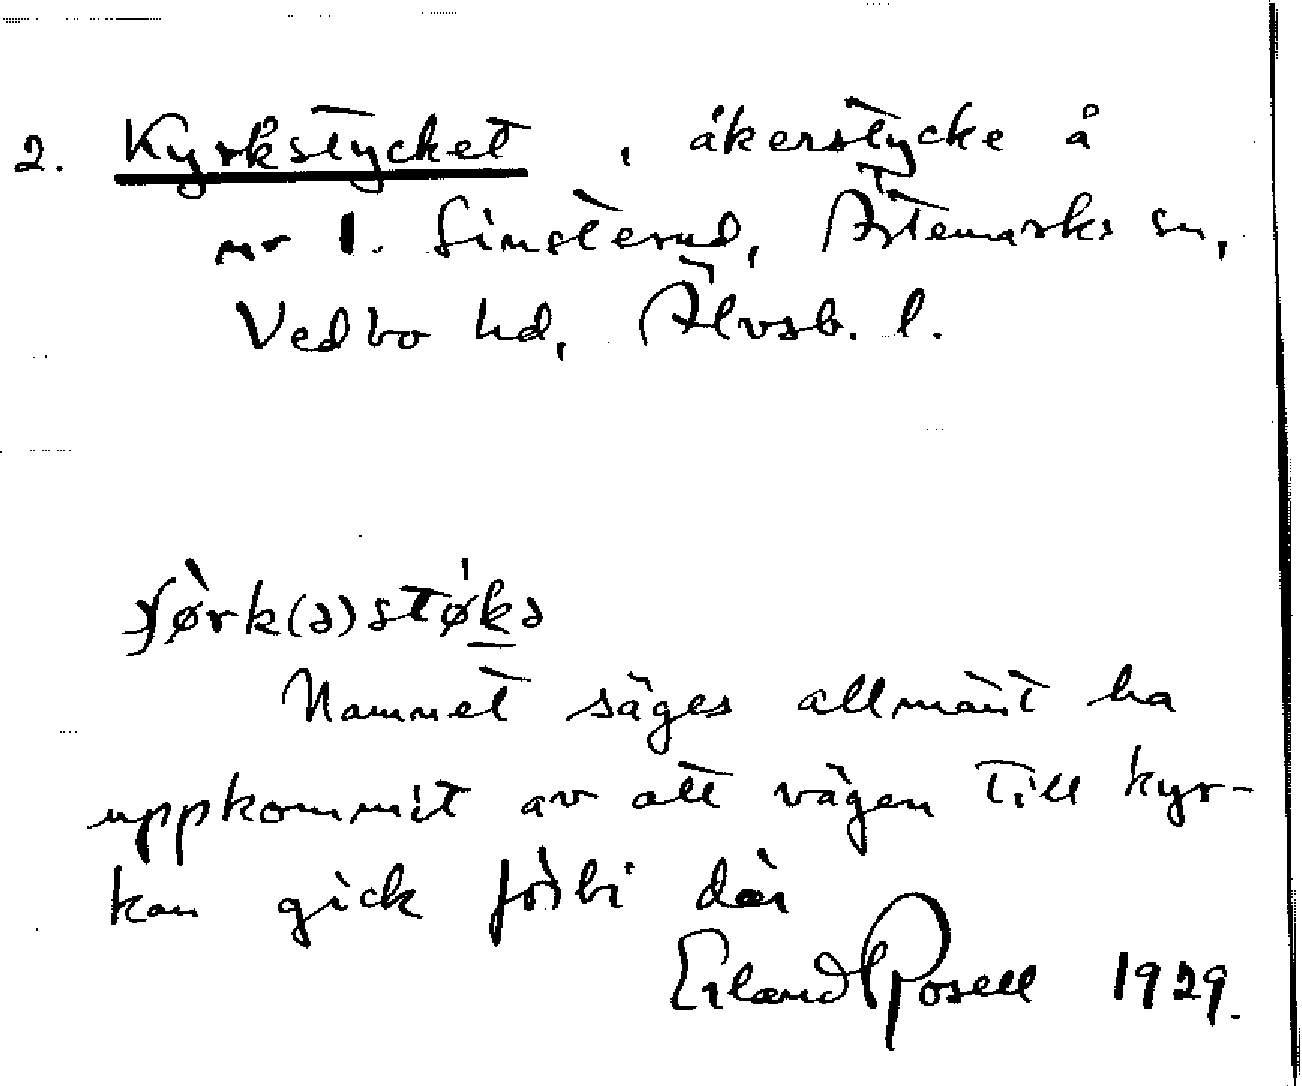 2. Kyrkstycket, åkerstycke å
nr 1. Simsterud, Ärtemarks sn,
Vedbo hd, Älvsb. l.
ʃø̀rk(ə)støkə
Namnet säges allmänt ha
uppkommit av att vägen till kyr-
kan gick förbi där
Erland Rosell 1929.